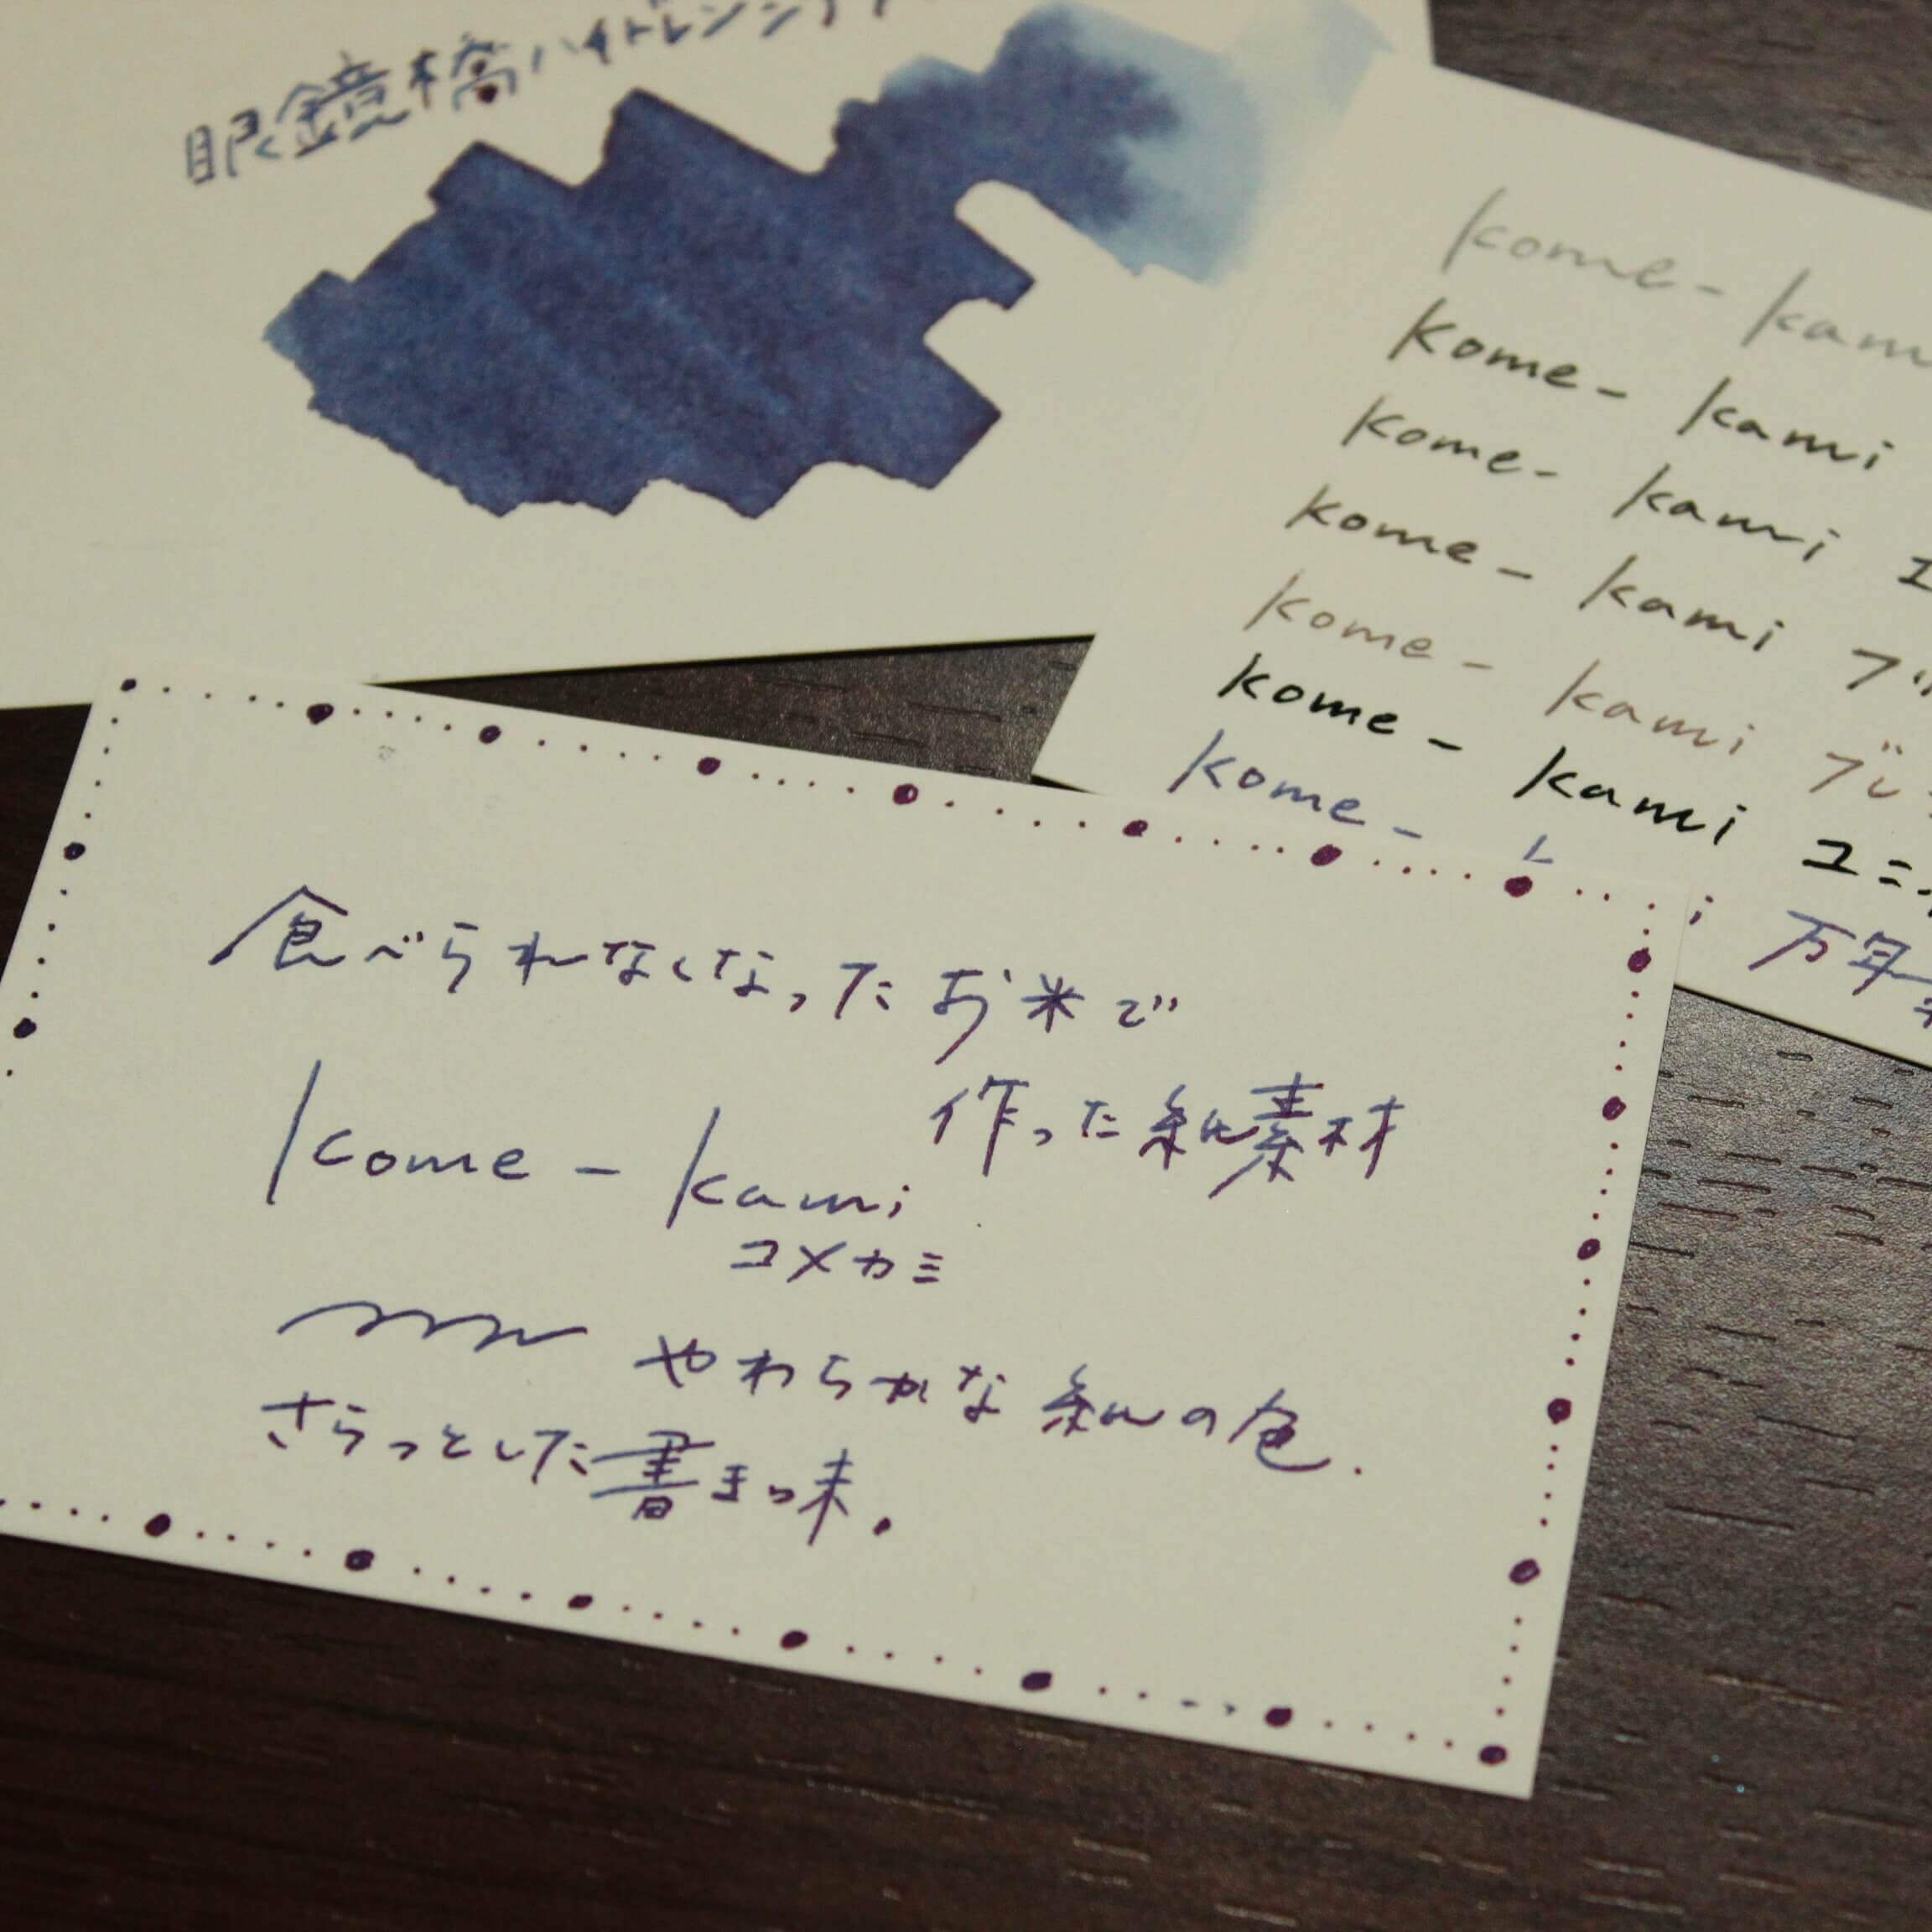 眼鏡橋ハイドレンジア
kome-kam
kome-kami
kome-kami エ
kome-kami ブ
kome-kami ブレ
kome-kami ユニ
kome-
万年
食べられなくなったお米で
作った紙素材
kome-kami
コメカミ
やわらかな紙の色.
さらっとした書き味.